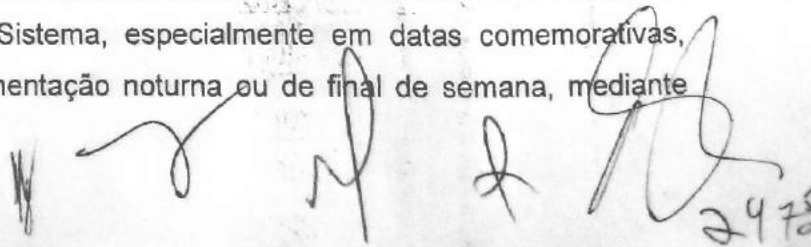 Sistema, especialmente em datas comemorativas,
mentação noturna ou de final de semana, mediante